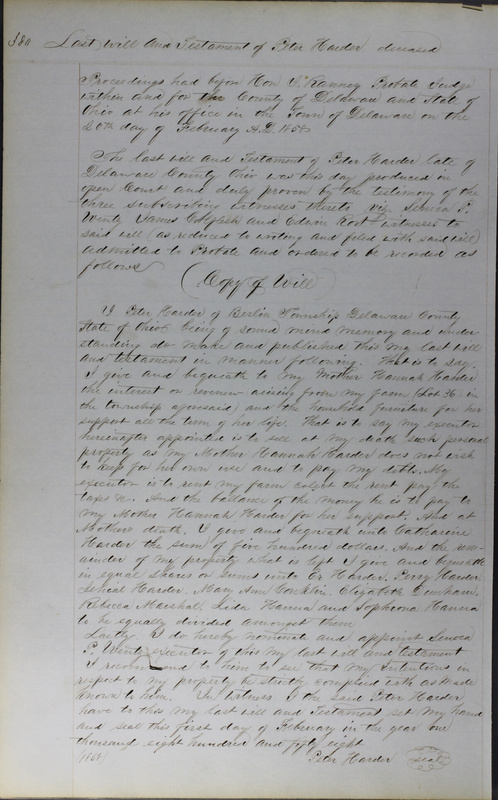 380 Last Will And Testament of Peter Harder deceased
Proceedings had before Hon T. Ranney Probate Judge
within and for the County of Delaware and State of
Ohio at his office in the Town of Delaware on the
20th day of February A.D. 1858
The last will and Testament of Peter Harder late of
Delaware County Ohio was this day produced in
open Court and duly proven by the testimony of the
three subscribing witnesses thereto, viz, Seneca P.
Wentz James and Edwin Root witnesses to
said will (as reduced to writing and filed with said will)
admitted to Probate and ordered to be recorded as
follows
(Copy of Will)
I Peter Harder of Berlin Township Delaware County
State of Ohio being of sound mind memory and under
standing do make and published this my last will
and testament in manner following. That is to say.
I give and bequeath to my Mother Hannah Harder
the interest or revenue arising from my farm (Lot 36) in
the township aforesaid) and the household furniture for her
support all the term of her life. That is to say my executor
hereinafter appointed is to sell at my death such personal
property as my Mother Hannah Harder does not wish
to keep for her own use and to pay my debts. My
executor is to rent my farm colect the rent pay the
taxes &c. And the ballance of the money he is to pay to
my Mother Hannah Harder for her support. And at
Mothers death. I give and bequeath unto Catharine
Harder the sum of five hundred dollars. And the rem-
ainder of my property what is left I give and bequeath
in equal shares or sums unto Harder. Perry Harder.
Harder. Mary Ann Conklin. Elizabeth
Rebecca Marshal. Hanna and Hanna
to be equally divided amongst them
Lastly I do hereby nominate and appoint Seneca
P. Wentz executor of this my last will and testament
I recommend to him to see that my Intentions in
respect to my property be strictly complied with as Made
known to him. In witness I the said Peter Harder
have to this my last will and Testament set My hand
and seal this first day of February in the year one
thousand eight hundred and fifty eight
(1858) Peter Harder (seal)